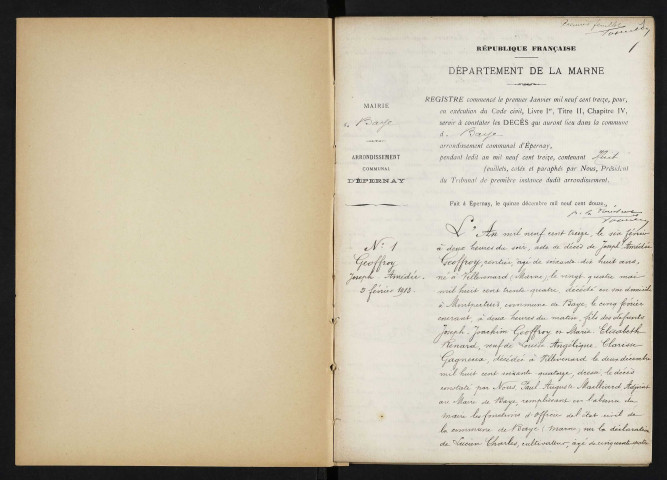 RÉPUBLIQUE FRANÇAISE
DÉPARTEMENT DE LA MARNE
MAIRIE
de Baye
ARRONDISSEMENT
COMMUNAL
D'ÉPERNAY
REGISTRE commencé le premier Janvier mil neuf cent treize, pour,
en exécution du Code civil, Livre Ier, Titre II, Chapitre IV,
servir à constater les DÉCÈS qui auront lieu dans la commune
d Baye
arrondissement communal d'Epernay,
pendant ledit an mil neuf cent treize, contenant Huit
feuillets, cotés et paraphés par Nous, Président
du Tribunal de première instance dudit arrondissement.
Fait à Epernay, le quinze décembre mil neuf cent douze.
No 1
Geoffroy
Joseph Amédée
février 1913
L'An mil neuf cent treize, le six février
à deux heures du soir, acte de décès de Joseph Amédée
Geoffroy, rentier, âgé de soixante dix huit ans,
né à Villevenard (Marne), le vingt quatre mai
mil huit cent trente quatre, décédé en son domicile
à Montpertuis, commune de Baye, le cinq février
courant, à deux heures du matin, fils des défunts
Joseph Joachim Geoffroy et Marie Elisabeth
Renard, veuf de Louise Angélique Clarisse
décédée à Villevenard le deux décembre
mil huit cent soixante quatorze, dressé, le décès
constaté par Nous, Paul Auguste Adjoint
au Maire de Baye, remplissant en l'absence du
maire les fonctions d'Officier de l'état civil de
la commune de Baye (Marne), sur la déclaration
de Lucien Charles, cultivateur, âgé de cinquante